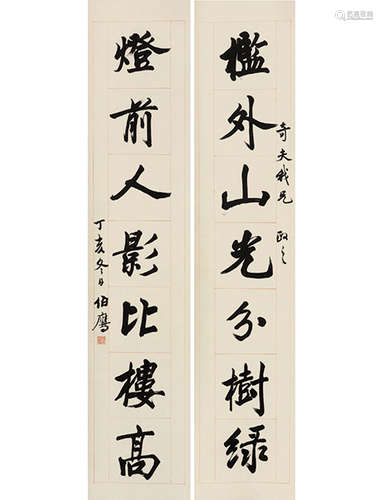 檻外山光分樹綠
奇夫我兄 政之
燈前人影比樓高
丁亥冬日 伯鷹